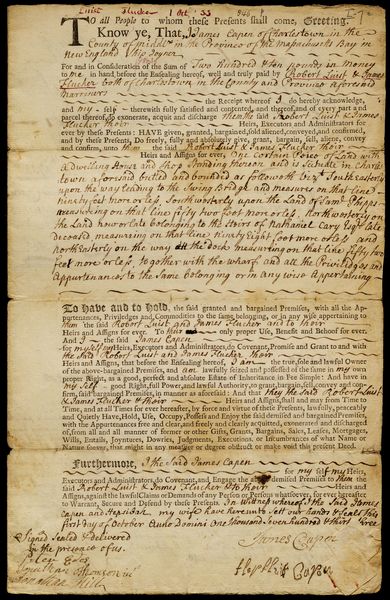 Luist Flucker 1 Oct 33
TO all People to whom these Presents shall come, Greeting.
Know ye, That, I James Capen of Charlestown in the
County of Middlx in the Province of the Massachusetts Bay in
New England Ship Joyner
For and in Consideration of the Sum of Two Hundred & ten pounds in money
To me in hand before the Ensealing hereof, well and truly paid by Robert Luist & James
Flucker both of Charlestown in the County and Province aforesaid
Marriners
the Receipt whereof I do hereby acknowledge,
and my self therewith fully satisfied and contented, and thereof, and of every part and
parcel thereof, do exonerate, acquit and discharge them the said Robert Luist & James
Flucker thoir Heirs, Executors and Administrators for
ever by these Presents: HAVE given, granted, bargained, sold, aliened, conveyed, and confirmed,
and by these Presents, Do freely, fully and absolutely give, grant, bargain, sell, aliene, convey
and confirm, unto them the said Robert Luist & James Flucker thoir
Heirs and Assigns for ever, One Certain Peice of Land with
a Dwelling House and Shop standing thereon and is Scituate in Charls
town aforesaid butted and bounded as followeth viz: Southeasterly
upon the way leading to the Swing Bridge and measures on that line
ninty feet more or less, Southwesterly upon the Land of Saml: Phipps
measuring on that line fifty two foot more or less, Northwesterly on
the Land now or late belonging to the Heirs of Nathaniel Cary Esqr late
deceased measuring on that line Ninety Eight foot more or less and
northEasterly on the way the Dock measuring on that line fifty two
feet more or less, together with the wharf and all the Priviledges and
Appurtenances to the Same belonging or in any wise Appertaining
To Have and to Hold, the said granted and bargained Premises, with all the Ap-
purtenances, Priviledges and Commodities to the same belonging, or in any wise appertaining to
them the said Robert Luist and James Flucker and to thoir
Heirs and Assigns for ever. To their only proper Use, Benefit and Behoof for ever.
And I the said James Capen
for my self my Heirs, Executors, Administrators, do Covenant, Promise and Grant to and with
the said Robert Luist and James Flucker thoir
Heirs and Assigns, that before the Ensealing hereof, I am the true, sole and lawful Owner
of the above-bargained Premises, and am lawfully seized and possessed of the same in my own
proper Right, as a good, perfect and absolute Estate of Inheritance in Fee Simple: And have in
my self good Right, full Power and lawful Authority, to grant, bargain, sell, convey and con-
firm, said bargained Premises, in manner as aforesaid: And that they the said Robert Luist
& James Flucker & thoir Heirs and Assigns, shall and may from Time to
Time, and at all Times for ever hereafter, by force and virtue of these Presents, lawfully, peaceably
and Quietly Have, Hold, Use, Occupy, Possess and Enjoy the said demised and bargained Premises
with the Appurtenances free and clear, and freely and clearly acquitted, exonerated and discharged
of, from all and all manner of former or other Gifts, Grants, Bargains, Sales, Leases, Mortgages,
Wills, Entails, Joyntures, Dowries, Judgments, Executions, or Incumbrances of what Name or
Nature soever, that might in any measure or degree obstruct or make void this present Deed.
Furthermore, I the said James Capen
for my self my Heirs,
Executors and Administrators, do Covenant, and Engage the demised Premises to them the
said Robert Luist & James Flucker & to thoir Heirs and
Assigns, against the lawful Claims or Demands of any Person or Persons whatsoever, for ever hereafter
to Warrant, Secure and Defend by these Presents. In witness whereof I the said James
Capen and Hepzibah my wife have hereunto Sett our hands & Seals this
first Day of October Anno Domini One thousand Seven hundred & thirty three
Signed Sealed & delivered
in the presence of us.
James Capen